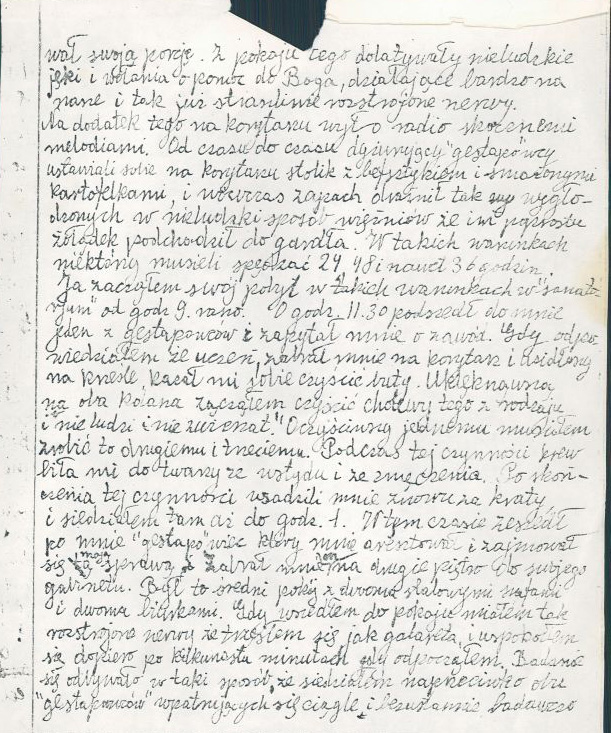 wał swoją porcję. Z pokoju tego dolatywały nieludzkie
jęki i wołania o pomoc do Boga, działające bardzo na
nasze i tak już straszliwie rozstrojone nerwy.
Na dodatek tego na korytarzu wył o radio skocznemi
melodiami. Od czasu do czasu dyżurujący "gestapo"wcy
ustawiali sobie na korytarzu stolik z befsztykiem i smażonymi
kartofelkami, i wówczas zapach drażnił tak wygło-
dzonych w nieludzki sposób więźniów że im poprostu
żołądek podchodził do gardła. W takich warunkach
niektórzy musieli spędzać 24 48 i nawet 36 godzin.
Ja zacząłem swój pobyt w takich warunkach w "sanato-
rjum" od godz 9. rano. O godz. 11.30 podszedł do mnie
jeden z gestapowców i zapytał mnie o zawód. Gdy odpo-
wiedziałem że uczeń, zabrał mnie na korytarz i usiadłszy
na krześle, kazał mi sobie czyścić buty. Uklęknąwszy
na oba kolana zacząłem czyścić cholewy tego z rodzaju
"ni ludzi i nie zwierząt." Oczyściwszy jednemu musiałem
zrobić to drugiemu i trzeciemu. Podczas tej czynności krew
biła mi do twarzy ze wstydu i ze zmęczenia. Po skoń-
czeniu tej czynności wsadzili mnie znowu za kraty
i siedziałem tam aż do godz. 1. W tym czasie zeszedł
po mnie "gestapo"wiec który mnie aresztował i zajmował
się moją sprawą i zabrał mnie na drugie piętro do swojego
gabinetu. Był to średni pokój z dwoma stalowymi szafami
i dwoma biurkami. Gdy wszedłem do pokoju miałem tak
rozstrojone nerwy że trząsłem się jak galareta, i uspokoiłem
się dopiero po kilkunastu minutach gdy odpocząłem. Badanie
się odbywało w taki sposób, że siedziałem naprzeciwko obu
"gestapowców" wpatrujących się ciągle i bezustannie badawczo